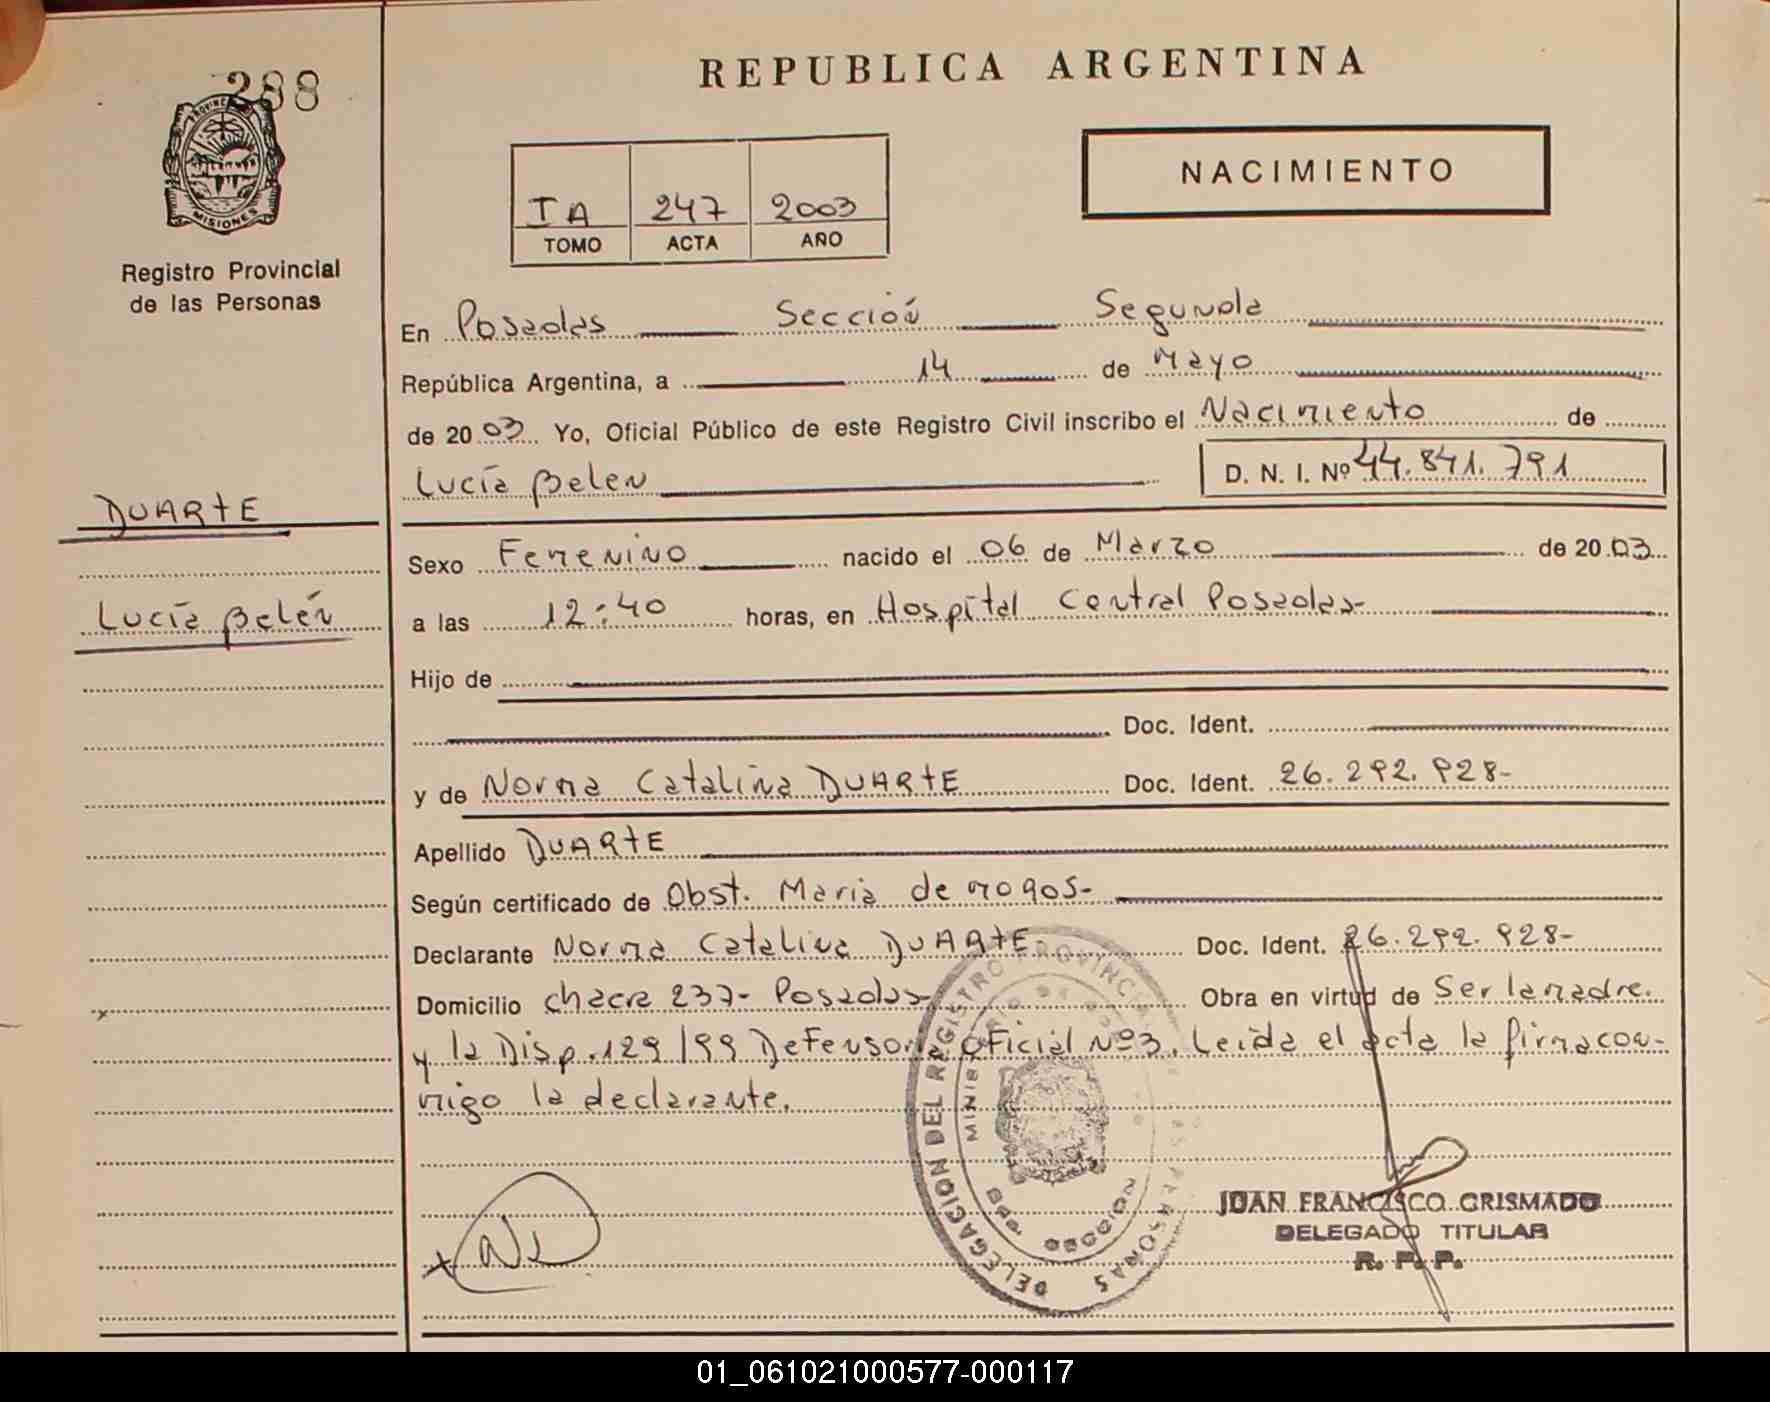 288
PROVINCIA
MISIONES
Registro Provincial
de las Personas
REPUBLICA ARGENTINA
I A 247 2003
TOMO ACTA AÑO
NACIMIENTO
En Posadas Sección Segunda
República Argentina, a 14 de Mayo
de 2003 Yo, Oficial Público de este Registro Civil inscribo el Nacimiento de
Lucía Belen D. N. I. Nº 44.841.791
DUARTE
Sexo Femenino nacido el 06 de Marzo de 2003
Lucía Belén
a las 12:40 horas, en Hospital Central Posadas-
Hijo de
Doc. Ident.
y de Norma Catalina DUARTE Doc. Ident. 26.292.928-
Apellido DUARTE
Según certificado de Obst. Maria de
Declarante Norma Catalina DUARTE Doc. Ident. 26.292.928-
Domicilio chacra 237- Posadas Obra en virtud de Ser la madre.
y la Disp. 129/99 Defensoría Oficial Nº3. Leída el acta la firma con-
migo la declarante.
DELEGACION DEL REGISTRO PROVINCIAL DE LAS PERSONAS
JUAN FRANCISCO GRISMADO
DELEGADO TITULAR
R. P. P.
01_061021000577-000117